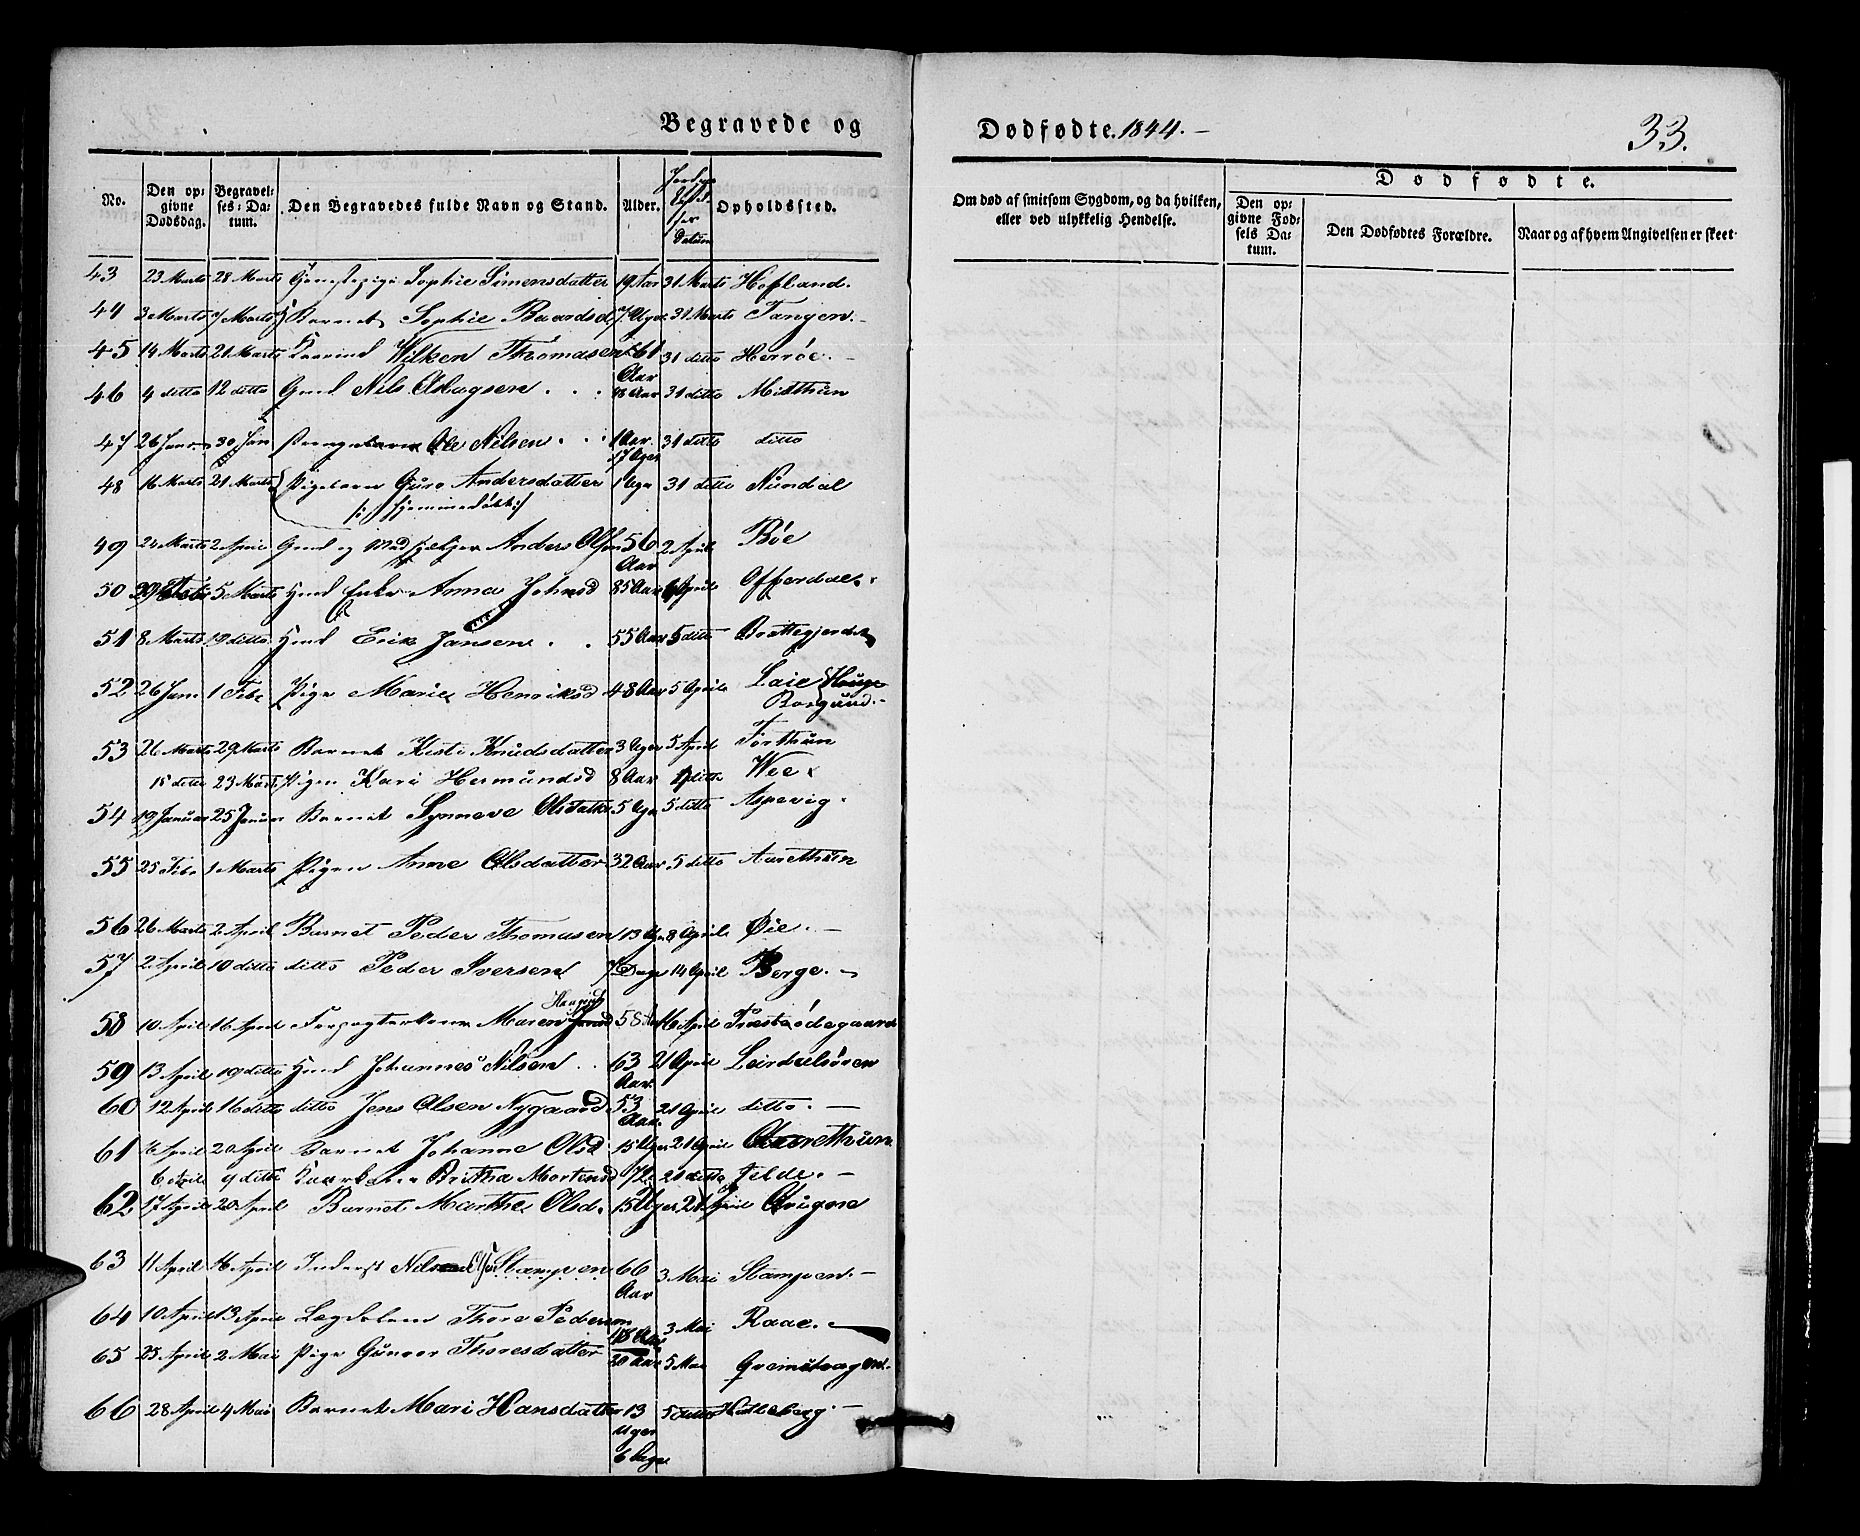 Begravede og
Dødfødte. 1844. -
33.
No.
Den opgivne Dødsdag.
Begravelses-Datum.
Den Begravedes fulde Navn og Stand.
Alder.
Datum
Opholdssted.
Om død af smitsom Sygdom, og da hvilken, eller ved ulykkelig Hendelse.
Dødfødte.
Den opgivne Fødsels Datum.
Den Dødfødtes Forældre.
Naar og af hvem Angivelsen er skeet
43 23 Marts 28 Marts Sophie Simensdatter 19 Aar 31 Marts Hofland.
44 3 Marts 7 Marts Barnet Sophie Baardsd 7 Uger 31 Marts Tangen. -
45 14 Marts 21 Marts Wilken Thomasen 61 Aar 31 ditto
46 4 ditto 12 ditto Gmd Nils 48 Aar 31 ditto
47 26 Jan 30 Jan Ole Nilsen 1 Aar 17 Uger 31 ditto ditto
48 16 Marts 21 Marts Pigebarn Guro Andersdatter 1 Uge 31 ditto Nundal
/: hjemmedøbt :/
49 24 Marts 2 April Gmd og Anders Olsen 56 Aar 2 April Bøe
50 5 Marts Hmd Enke Anna Johnsd 85 Aar April Offerdal.
51 8 Marts 19 ditto Hmd Erik Jansen 55 Aar 5 ditto Brattegjerdet
52 26 Janu 1 Feb Pige Marie Henriksd 48 Aar 5 April
Borgund. -
53 21 Marts 29 Marts Barnet Kisti Knudsdatter 3 Uger 5 April Torthun
15 ditto 23 Marts Pigen Kari Hermundsd 8 Aar ditto Wee
54 19 Januar 25 Januar Barnet Synneve Olsdatter 5 Uger 5 ditto Aspevig.
55 25 Feb 1 Marts Pigen Anne Olsdatter 32 Aar 5 ditto Aarethun
56 26 Marts 2 April Barnet Peder Thomasen 13 Uger 8 April Øie. -
57 2 April 10 ditto ditto Peder Iversen 7 Dage 14 April Berge. -
58 10 April 16 April Maren 58 Aar 16 April Præsteødegaard
59 13 April 19 ditto Hmd Johannes Nilsen 63 Aar. 21 April Leirdalsøren
60 12 April 16 ditto ditto Jens Olsen Nygaard 53 Aar. 21 April ditto. -
61 April 20 April Barnet Johanne Olsd 15 Uger 21 April Aarethun
6 April 9 ditto Britha Mortensd 72 21 ditto Jelde. -
62 17 April 20 April Barnet Marthe Olsd. 15 Uger 21 April
63 11 April 16 April Inderst Nils Stampen 66 Aar 3 Mai Stampen. -
64 10 April 13 April Thore Pedersen 3 Mai Raae. -
65 25 April 2 Mai Pige Gunvor Thoresdatter 20 Aar 5 Mai
66 28 April 4 Mai Barnet Mari Hansdatter 13 Uger 6 Dage 5 ditto